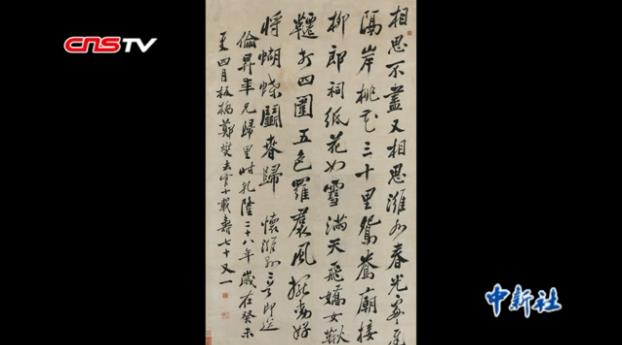 CNSTV
相思不盡又相思濰水春光處處遲
隔岸桃花三十里鴛鴦廟接
柳郎祠紙花如雪滿天飛嬌女鞦
韆打四圍五色羅裙風擺動好
將蝴蝶鬪春歸 懷濰縣二首即送
倫昇年兄歸里時乾隆二十八年歲在癸未
夏四月板橋鄭燮去官十載壽七十又一
中新社